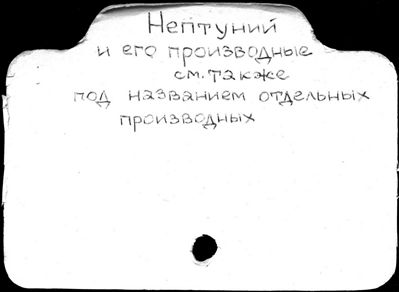 Нептуний
и его производные
см. также
под названием отдельных
производных